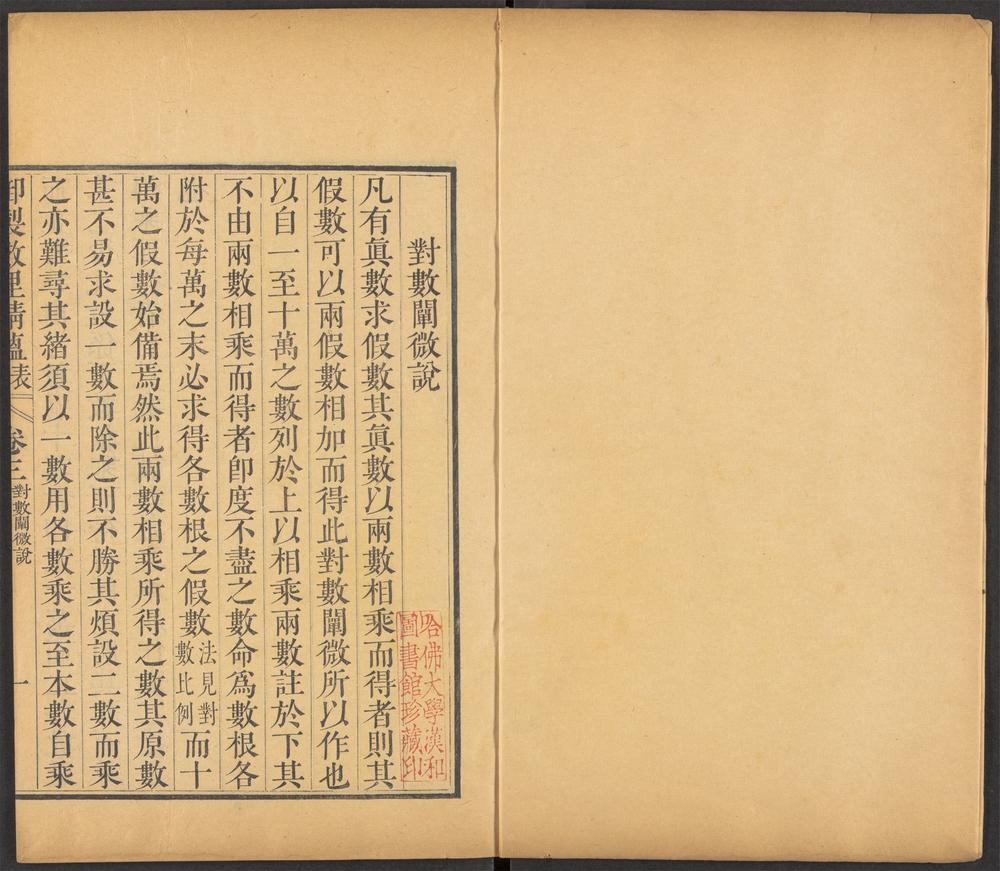 對數闡微說
凡有眞數求假數其眞數以兩數相乘而得者則其
假數可以兩假數相加而得此對數闡微所以作也
以自一至十萬之數列於上以相乘兩數註於下其
不由兩數相乘而得者卽度不盡之數命爲數根各
附於每萬之末必求得各數根之假數法見對數比例而十
萬之假數始備焉然此兩數相乘所得之數其原數
甚不易求設一數而除之則不勝其煩設二數而乘
之亦難尋其緒須以一數用各數乘之至本數自乘
御製數理精蘊表 卷三 對數闡微說 一
哈佛大學漢和
圖書館珍藏印